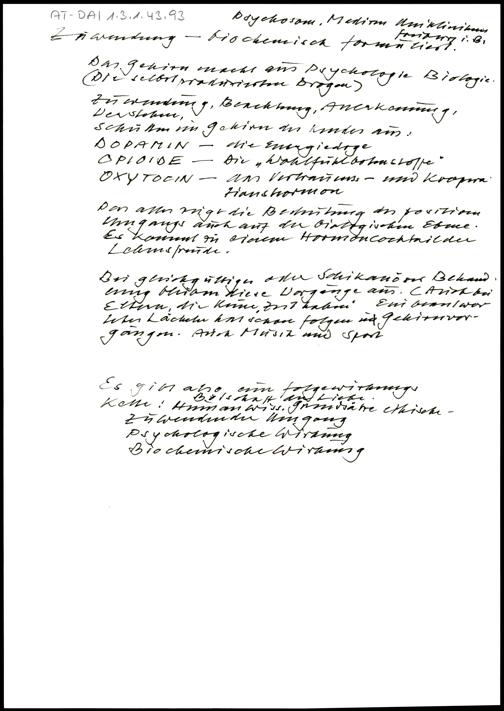 AT-DA 1.3.1.43.93
Psychosom. Medizin Uniklinikum
Freiburg i. B.
Zuwendung – biochemisch formuliert.
Das Gehirn macht aus Psychologie Biologie.
(Die selbstproduzierten Drogen)
Zuwendung, Beachtung, Anerkennung,
Verstehen,
schütten im Gehirn des Kindes aus:
DOPAMIN – die Energiedroge
OPIOIDE – Die „Wohlfühlbotenstoffe"
OXYTOCIN – das Vertrauens- und Koopera
tionshormon
Das alles zeigt die Bedeutung des positiven
Umgangs auch auf der biologischen Ebene.
Es kommt zu einem Hormoncocktail der
Lebensfreude.
Bei gleichgültiger oder schikanöser Behand
lung bleiben diese Vorgänge aus. (Auch bei
Eltern, die keine Zeit haben) Ein beantwor
tetes Lächeln hat schon Folgen in Gehirnvor-
gängen. Auch Musik und Sport
Es gibt also eine Folgewirkungs
Kette: Botschaft der Liebe.
Humanwiss. Grundsätze ethische –
Zuwendender Umgang
Psychologische Wirkung
Biochemische Wirkung